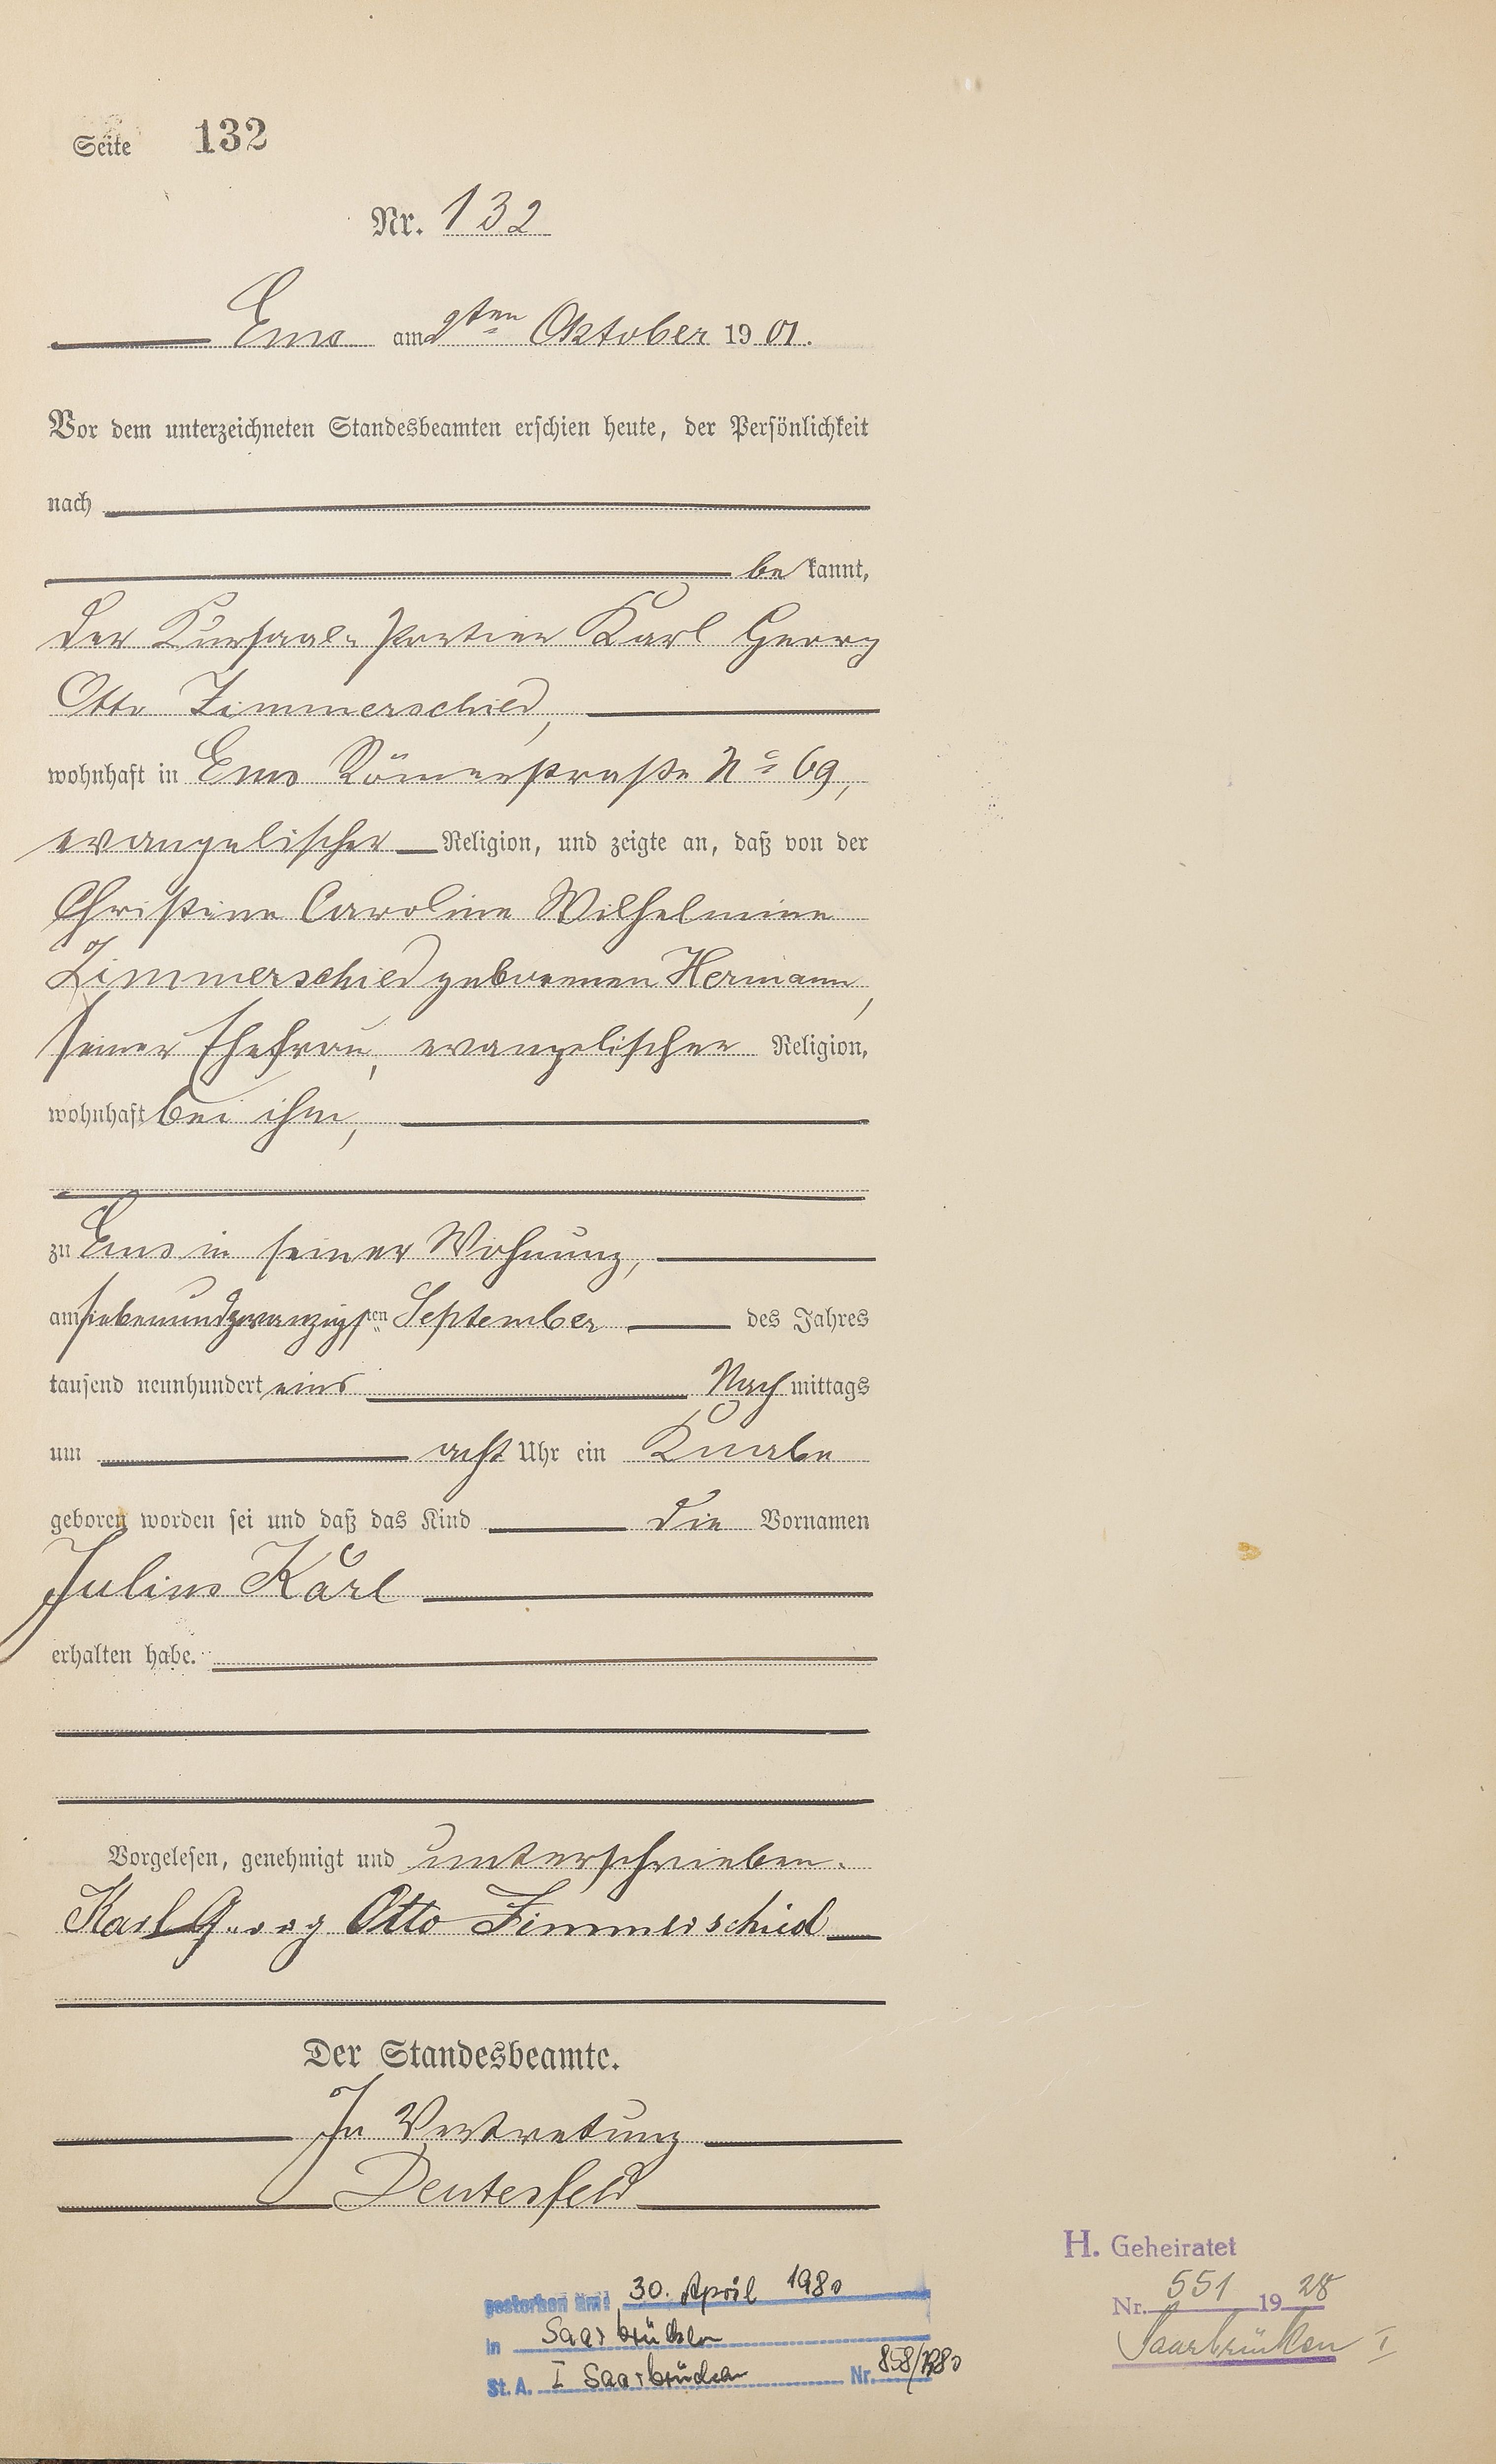 Seite 132
Nr. 132
Ems am 2ten Oktober 19 01.
Vor dem unterzeichneten Standesbeamten erschien heute, der Persönlichkeit
nach
be kannt,
der Kursaal-Portier Karl Georg
Otto Zimmerschied,
wohnhaft in Ems Römerstraße No 69,
evangelischer Religion, und zeigte an, daß von der
Christine Caroline Wilhelmine
Zimmerschied geborenen Hermann,
seiner Ehefrau, evangelischer Religion,
wohnhaft bei ihm,
zu Ems in seiner Wohnung,
am siebenundzwanzigsten September des Jahres
tausend neunhundert eins Nach mittags
um acht Uhr ein Knabe
geboren worden sei und daß das Kind die Vornamen
Julius Karl
erhalten habe.
Vorgelesen, genehmigt und unterschrieben.
Karl Georg Otto Zimmerschied
Der Standesbeamte.
In Vertretung
Deutesfeld
H. Geheiratet
Nr. 551 19 28
Saarbrücken I
gestorben am: 30. April 1980
in Saarbrücken
St. A. I Saarbrücken Nr. 858/1980